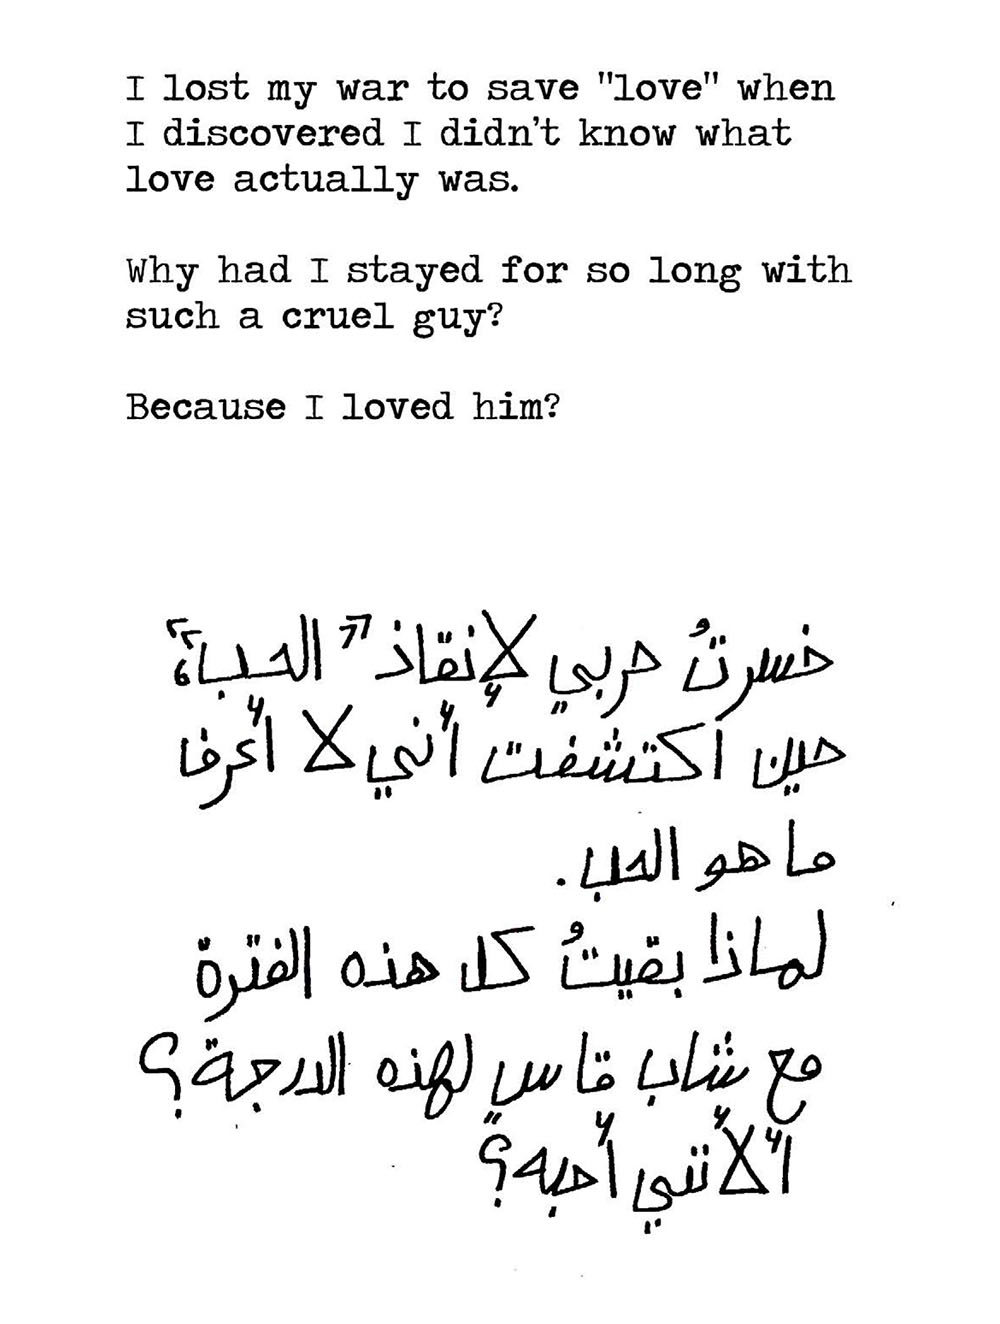 I lost my war to save "love" when
I discovered I didn't know what
love actually was.
Why had I stayed for so long with
such a cruel guy?
Because I loved him?
خسرتُ حربي لإنقاذ "الحب"،
حين اكتشفت أنني لا أعرف
ما هو الحب.
لماذا بقيتُ كل هذه الفترة
مع شاب قاسٍ لهذه الدرجة؟
ألأنني أحبه؟